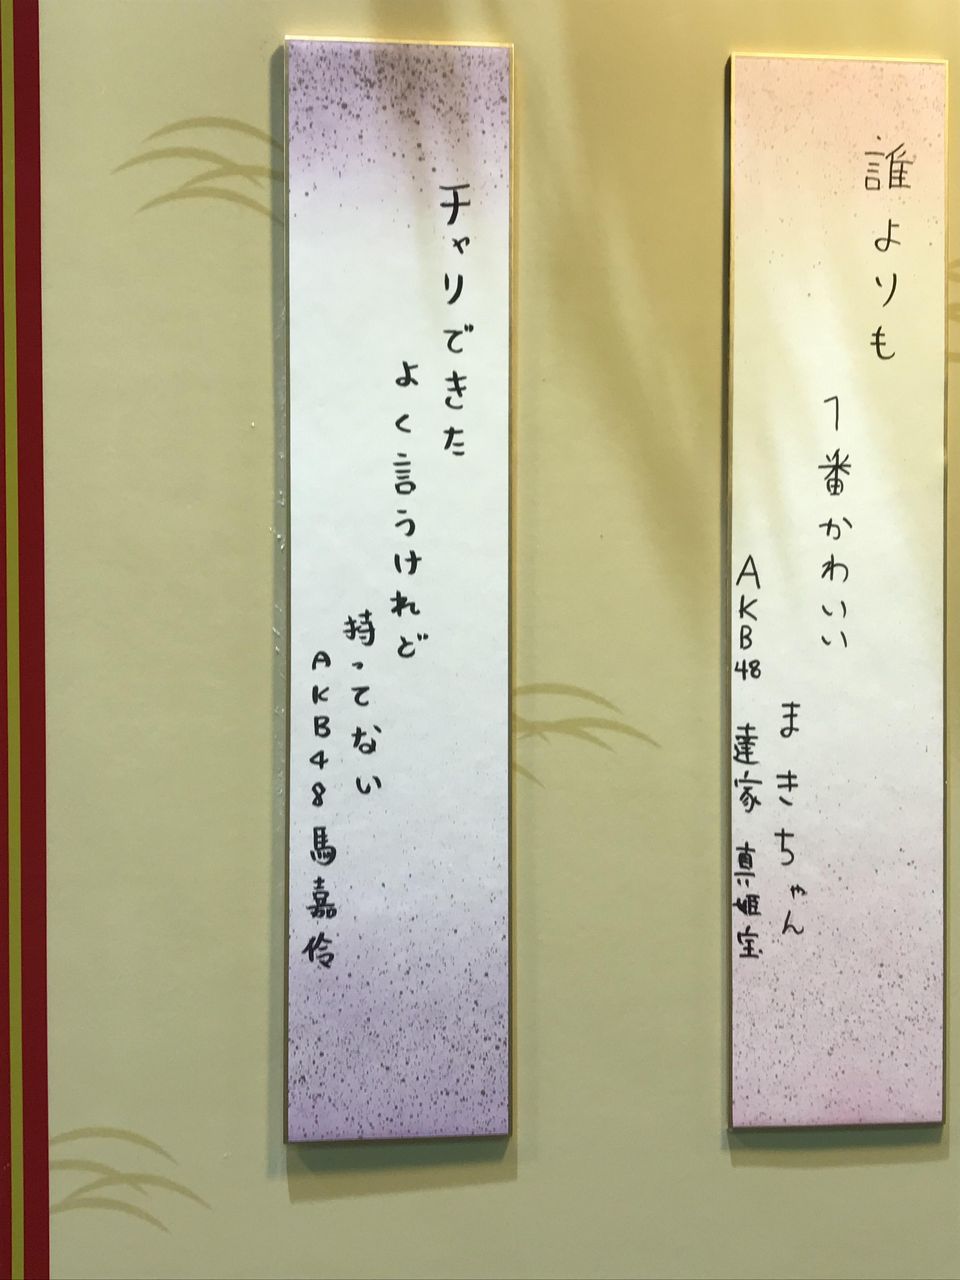 誰よりも
1番かわいい
まきちゃん
AKB48 達家 真姫宝
チャリできた
よく言うけれど
持ってない
AKB48 馬嘉伶